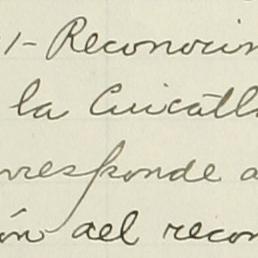 1- Reconocim
la Cuicatl
rresponde a
ón del recon